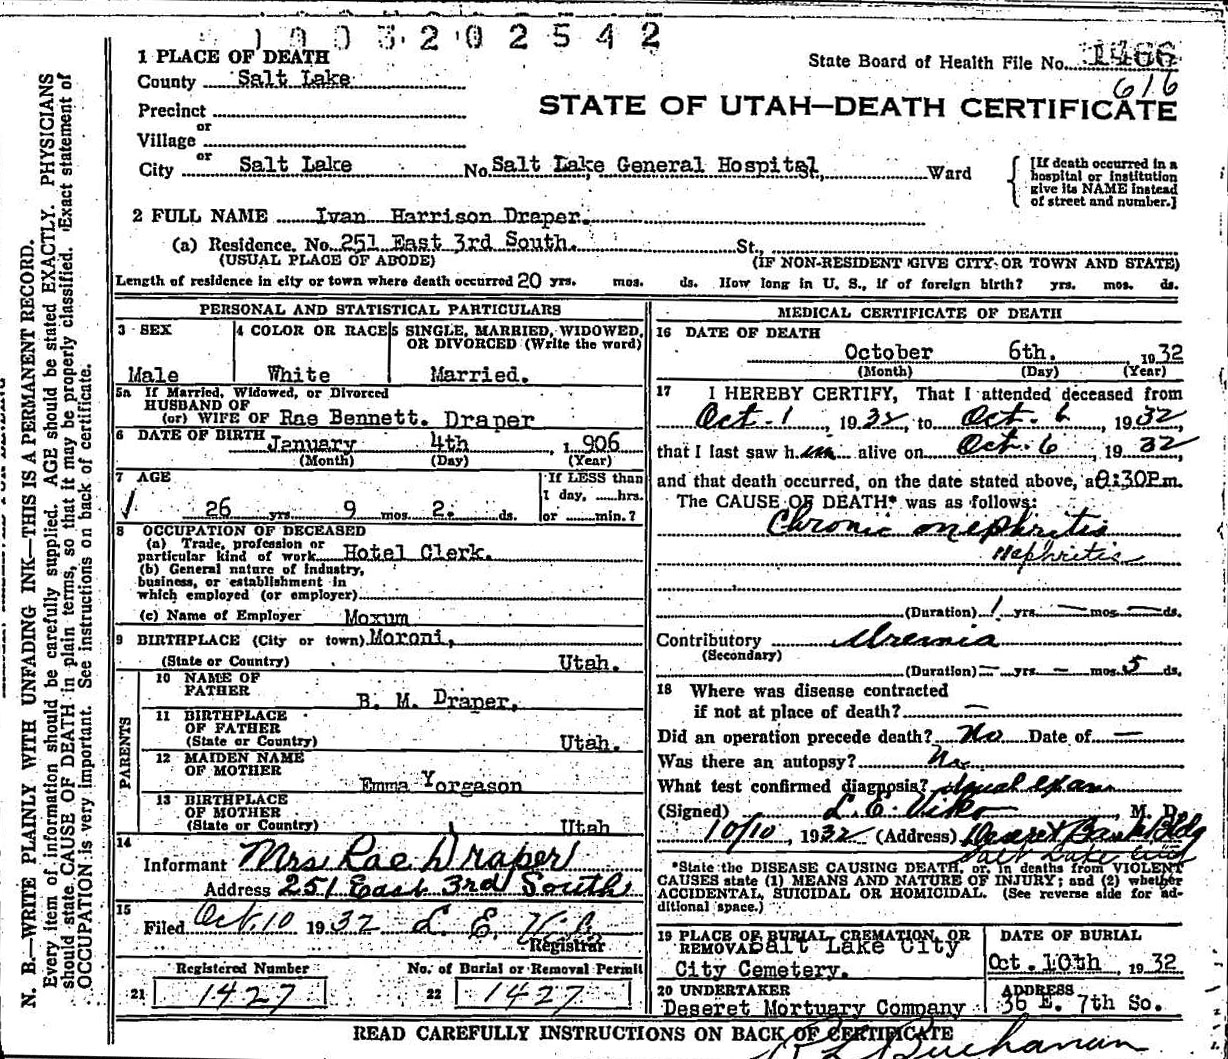 1003202542
1 PLACE OF DEATH
State Board of Health File No. 1466
County Salt Lake
616
STATE OF UTAH—DEATH CERTIFICATE
Precinct
or
Village
or
City Salt Lake No. Salt Lake General Hospital, Ward
[If death occurred in a
hospital or institution
give its NAME instead
of street and number.]
2 FULL NAME Ivan Harrison Draper.
(a) Residence. No. 251 East 3rd South. St.,
(USUAL PLACE OF ABODE) (IF NON-RESIDENT GIVE CITY OR TOWN AND STATE)
Length of residence in city or town where death occurred 20 yrs. mos. ds. How long in U. S., if of foreign birth? yrs. mos. ds.
PERSONAL AND STATISTICAL PARTICULARS
3 SEX
Male
4 COLOR OR RACE
White
5 SINGLE, MARRIED, WIDOWED,
OR DIVORCED (Write the word)
Married.
5a If Married, Widowed, or Divorced
HUSBAND OF
(or) WIFE OF Rae Bennett. Draper
6 DATE OF BIRTH January 4th 1906
(Month) (Day) (Year)
7 AGE
26 yrs. 9 mos. 2. ds.
If LESS than
1 day, hrs.
or min.?
8 OCCUPATION OF DECEASED
(a) Trade, profession or
particular kind of work Hotel Clerk.
(b) General nature of industry,
business, or establishment in
which employed (or employer)
(c) Name of Employer Moxum
9 BIRTHPLACE (City or town) Moroni,
(State or Country) Utah.
PARENTS
10 NAME OF
FATHER
B. M. Draper.
11 BIRTHPLACE
OF FATHER
(State or Country) Utah.
12 MAIDEN NAME
OF MOTHER
Emma Yorgason
13 BIRTHPLACE
OF MOTHER
(State or Country) Utah
14
Informant Mrs Rae Draper
Address 251 East 3rd South
15
Filed Oct. 10 1932 L. E. Viko
Registrar
Registered Number
21 1427
No. of Burial or Removal Permit
22 1427
MEDICAL CERTIFICATE OF DEATH
16 DATE OF DEATH
October 6th. 1932
(Month) (Day) (Year)
17 I HEREBY CERTIFY, That I attended deceased from
Oct-1, 1932, to Oct-6, 1932,
that I last saw him alive on Oct. 6, 1932
and that death occurred, on the date stated above, a :30P.m.
The CAUSE OF DEATH* was as follows:
Chronic nephritis
Nephritis
(Duration) 1 yrs. — mos. — ds.
Contributory Uremia
(Secondary)
(Duration) — yrs. — mos. 5 ds.
18 Where was disease contracted
if not at place of death? —
Did an operation precede death? No Date of —
Was there an autopsy? No
What test confirmed diagnosis? usual exam
(Signed) L. E. Viko M. D.
10/10, 1932 (Address) Deseret Bank Bldg
Salt Lake City
*State the DISEASE CAUSING DEATH, or, in deaths from VIOLENT
CAUSES state (1) MEANS AND NATURE OF INJURY; and (2) whether
ACCIDENTAL, SUICIDAL OR HOMICIDAL. (See reverse side for ad-
ditional space.)
19 PLACE OF BURIAL, CREMATION, OR
REMOVAL Salt Lake City
City Cemetery.
DATE OF BURIAL
Oct. 10th, 1932
20 UNDERTAKER
Deseret Mortuary Company
ADDRESS
36 E. 7th So.
READ CAREFULLY INSTRUCTIONS ON BACK OF CERTIFICATE
Buchanan
N. B.—WRITE PLAINLY WITH UNFADING INK—THIS IS A PERMANENT RECORD.
Every item of information should be carefully supplied. AGE should be stated EXACTLY. PHYSICIANS
should state CAUSE OF DEATH in plain terms, so that it may be properly classified. Exact statement of
OCCUPATION is very important. See instructions on back of certificate.